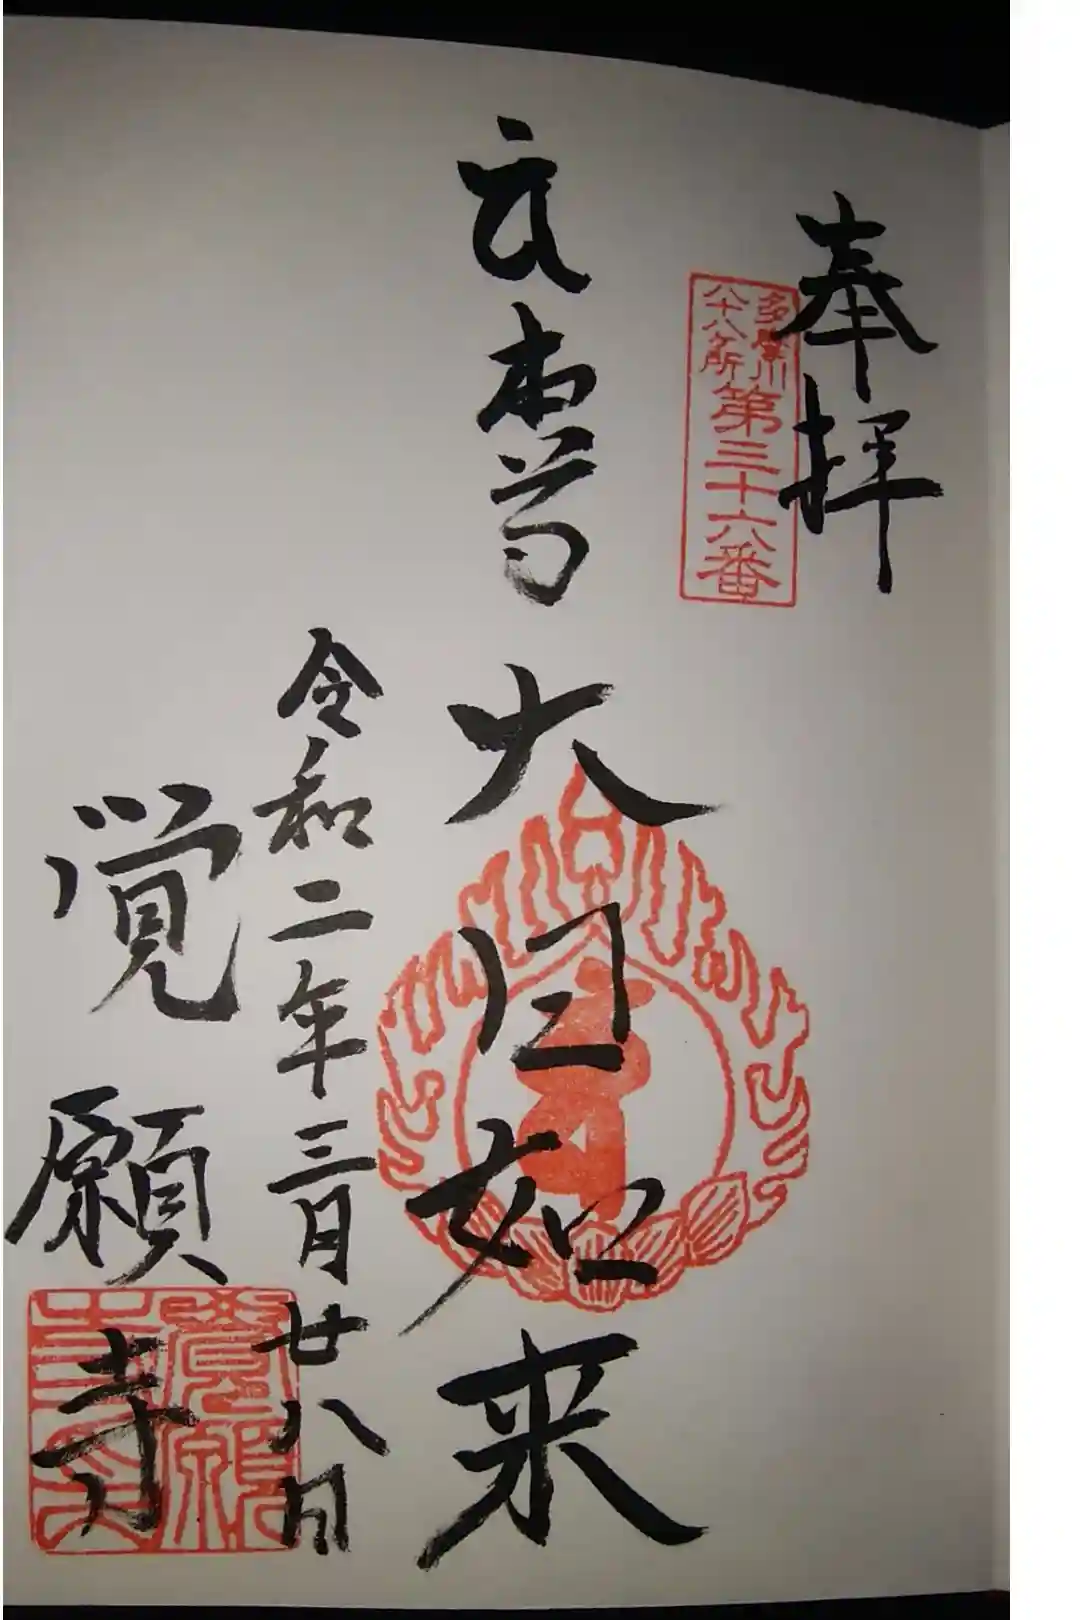 奉拝
多摩川
八十八ヶ所
第三十六番
本尊 大日如来
令和二年三月廿八日
覚願寺